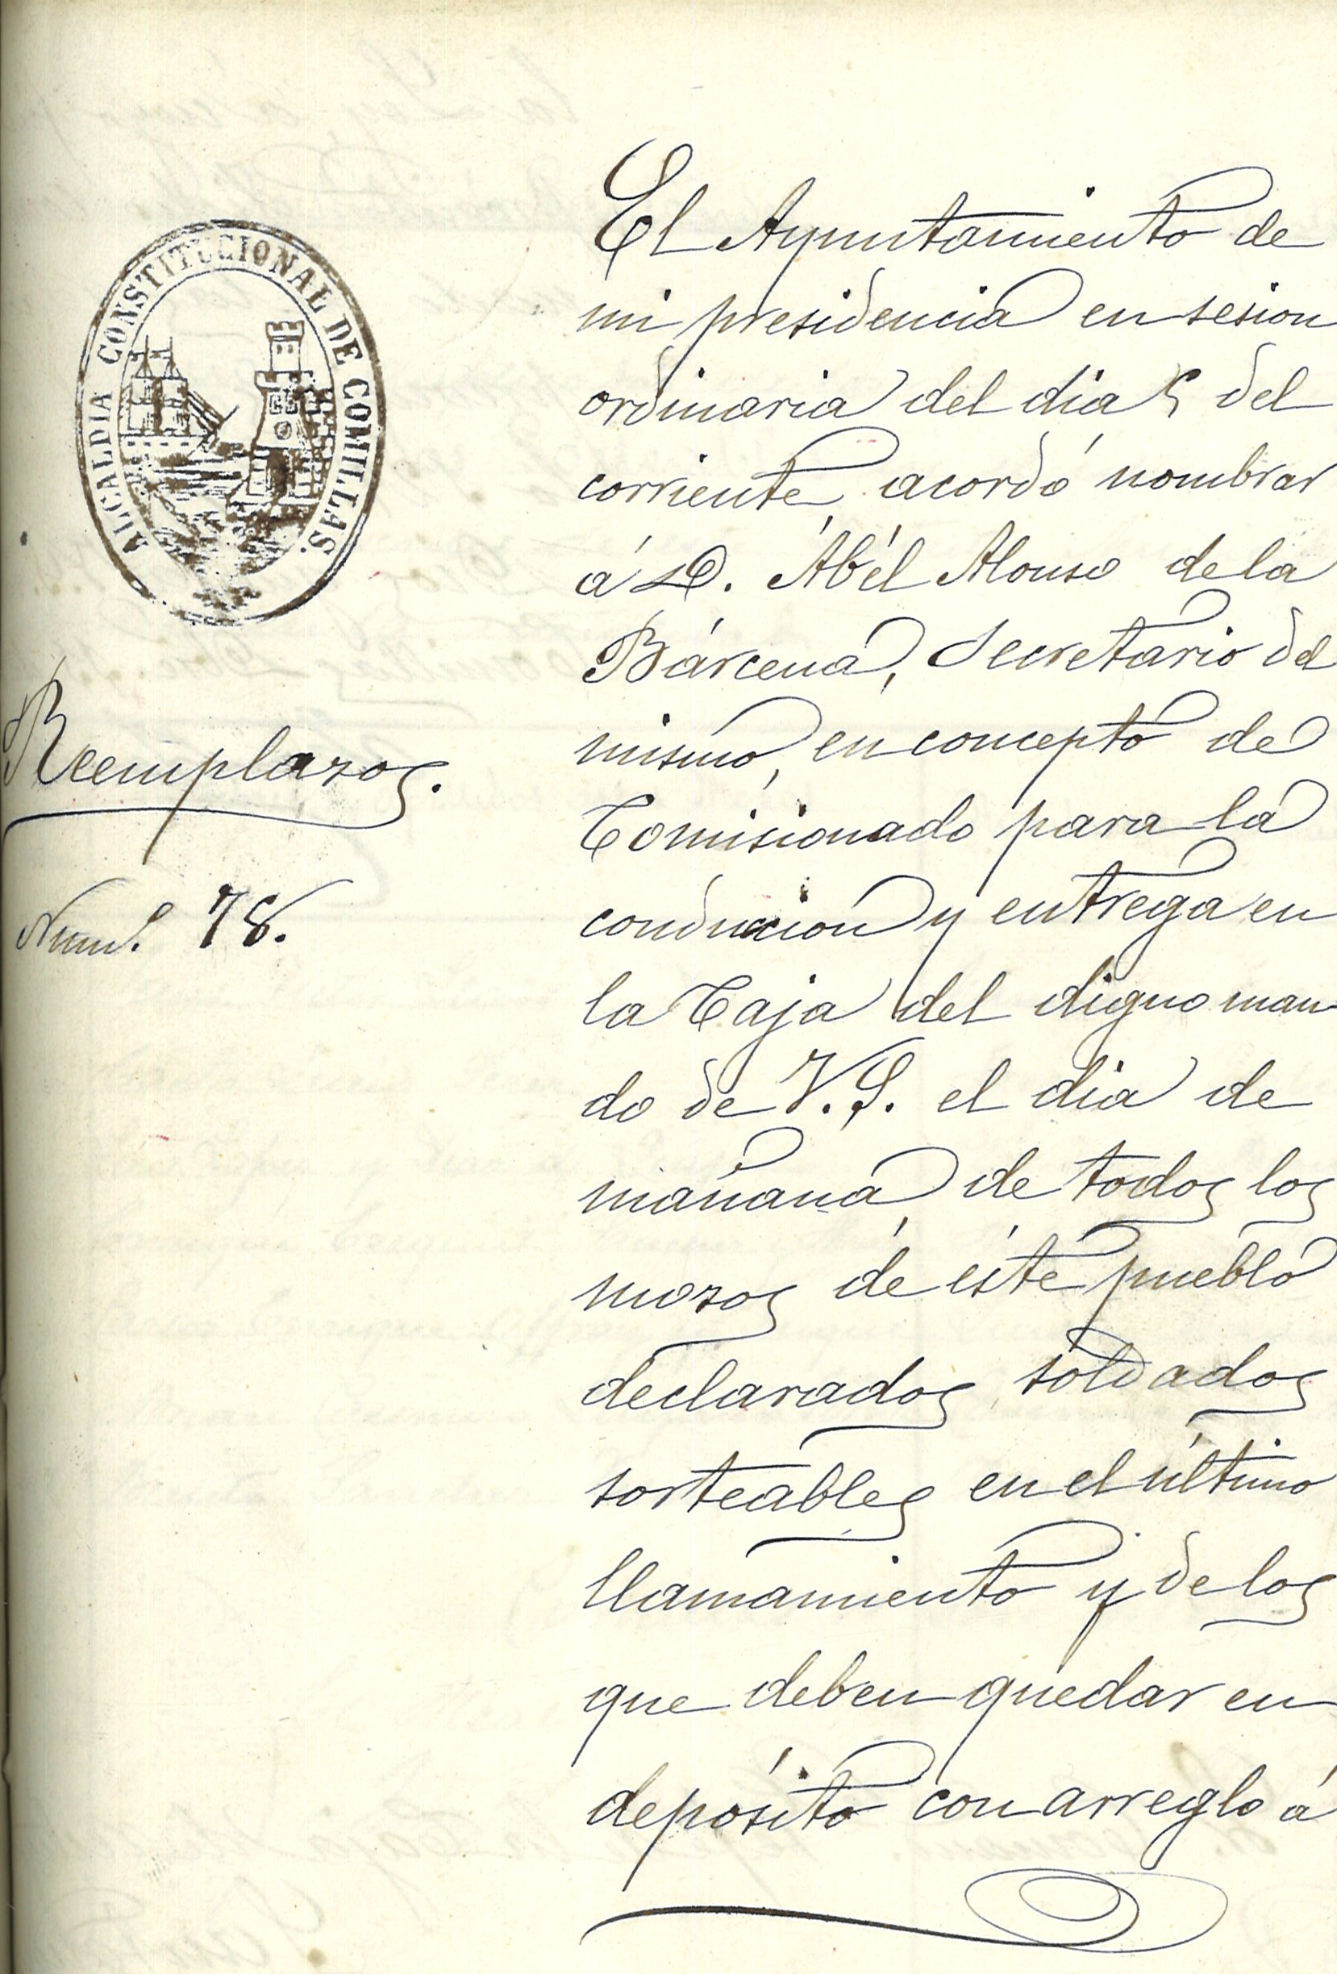 ALCALDIA CONSTITUCIONAL DE COMILLAS.
Reemplazos.
Num.º 78.
El Ayuntamiento de
mi presidencia en sesion
ordinaria del dia 5 del
corriente acordó nombrar
á D. Ábél Alonso de la
Bárcena, Secretario del
mismo, en concepto de
Comisionado para la
conduccion y entrega en
la Caja del digno man-
do de V.S. el dia de
mañana de todos los
mozos de éste pueblo
declarados soldados
sorteables en el último
llamamiento y de los
que deben quedar en
depósito con arreglo á